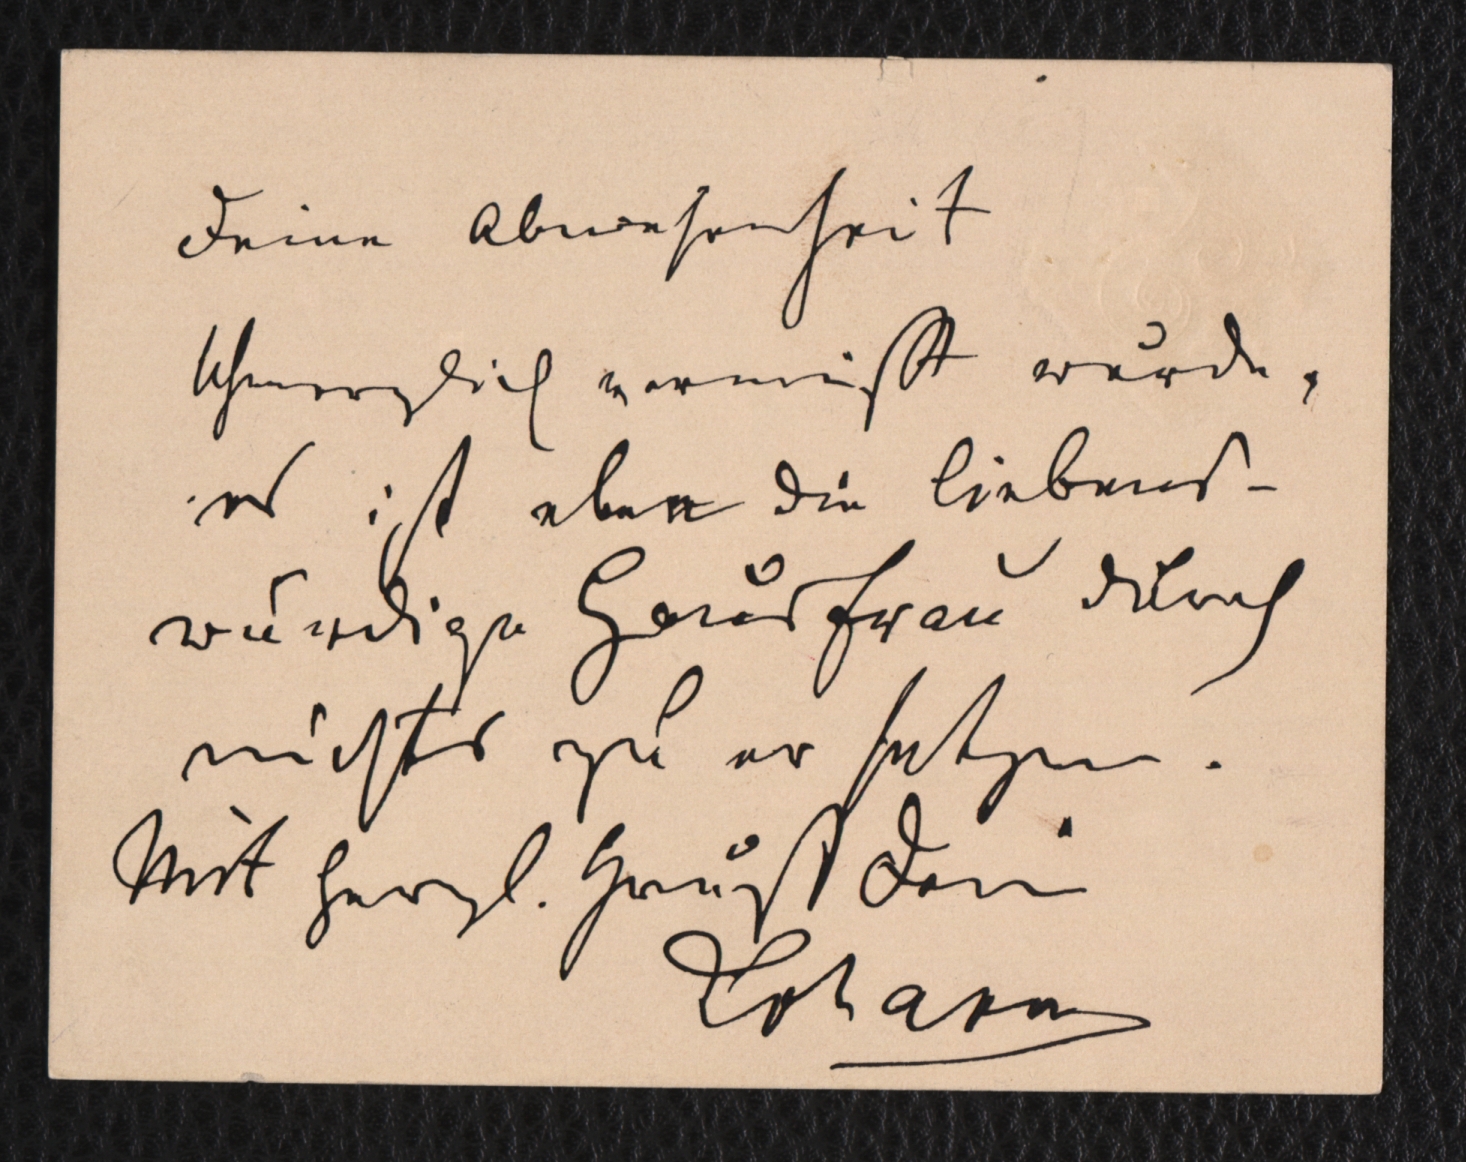 Deine Abwesenheit
schmerzlich vermißt wurde,
es ist eben die liebens-
würdige Hausfrau durch
nichts zu ersetzen.
Mit herzl. Gruß Dein